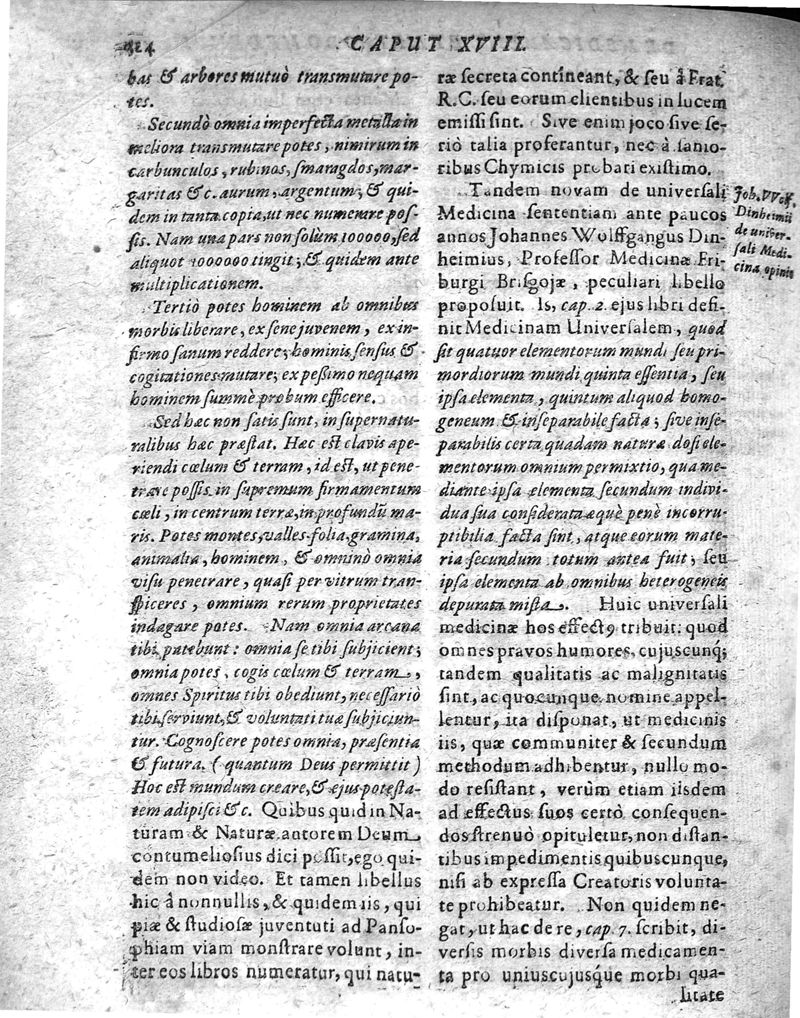 CAPUT XVIII.
bas & arbores mutuò transmutare po-
tes.
Secundò omnia imperfecta metalla in
meliora transmutare potes, nimirum in
carbunculos, rubinos, smaragdos, mar-
garitas &c. aurum, argentum, & qui-
dem in tanta copia, ut nec numerare pos-
sis. Nam una pars non solùm 100000, sed
aliquot 1000000 tingit; & quidem ante
multiplicationem.
Tertiò potes hominem ab omnibus
morbis liberare, ex sene juvenem, ex in-
firmo sanum reddere; hominis sensus &
cogitationes mutare; ex pessimo nequam
hominem summè probum efficere.
Sed hæc non satis sunt, in supernatu-
ralibus hæc præstat. Hæc est clavis ape-
riendi cœlum & terram, id est, ut pene-
trare possis in supremum firmamentum
cœli, in centrum terræ, in profundū ma-
ris. Potes montes, valles, folia, gramina,
animalia, hominem, & omninò omnia
visu penetrare, quasi per vitrum tran-
spiceres, omnium rerum proprietates
indagare potes. Nam omnia arcana
tibi patebunt: omnia se tibi subjicient;
omnia potes, cogis cœlum & terram,
omnes Spiritus tibi obediunt, necessariò
tibi serviunt, & voluntati tuæ subjiciun-
tur. Cognoscere potes omnia, præsentia
& futura. (quantum Deus permittit)
Hoc est mundum creare, & ejus potesta-
tem adipisci &c. Quibus quid in Na-
turam & Naturæ autorem Deum
contumeliosius dici possit, ego qui-
dem non video. Et tamen libellus
hic à nonnullis, & quidem iis, qui
piæ & studiosæ juventuti ad Panso-
phiam viam monstrare volunt, in-
ter eos libros numeratur, qui natu-
ræ secreta contineant, & seu à Frat.
R.C. seu eorum clientibus in lucem
emissi sint. Sive enim joco sive se-
rio talia proferantur, nec à sanio-
ribus Chymicis probari existimo.
Tandem novam de universali
Medicina sententiam ante paucos
annos Johannes Wolffgangus Din-
heimius, Professor Medicinæ Fri-
burgi Brisgojæ, peculiari libello
proposuit. Is, cap. 2. ejus libri defi-
nit Medicinam Universalem, quod
sit quatuor elementorum mundi seu pri-
mordiorum mundi quinta essentia, seu
ipsa elementa, quintum aliquod homo-
geneum & inseparabile facta; sive inse-
parabilis certa quadam naturæ dosi ele-
mentorum omnium permixtio, qua me-
diante ipsa elementa secundum indivi-
dua sua considerata æquè penè incorru-
ptibilia facta sint, atque eorum mate-
ria secundum totum antea fuit; seu
ipsa elementa ab omnibus heterogeneis
depurata mista. Huic universali
medicinæ hos effectꝰ tribuit: quod
omnes pravos humores, cujuscunq;
tandem qualitatis ac malignitatis
sint, ac quocunque nomine appel-
lentur, ita disponat, ut medicinis
iis, quæ communiter & secundum
methodum adhibentur, nullo mo-
do resistant, verùm etiam iisdem
ad effectus suos certò consequen-
dos strenuò opituletur, non distan-
tibus impedimentis quibuscunque,
nisi ab expressa Creatoris volunta-
te prohibeatur. Non quidem ne-
gat, ut hac de re, cap. 7. scribit, di-
versis morbis diversa medicamen-
ta pro uniuscujusque morbi qua-
litate
Joh. VVolf.
Dinheimii
de univer-
sali Medi-
cina opinio